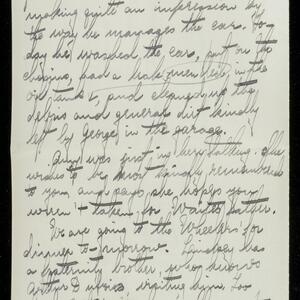 making quite an impression by
the way he manages the car. To-
day he washed the car, put on the
chains, had a
oil and, and cleaned up the
debris and general dirt kindly
left by George in the garage.
was just in here talking. She
wishes to be most kindly remembered
to you and says she hopes you
weren't taken for Waite's father.
We are going to the Wheelers for
dinner to-morrow. Lindsay has
a fraternity brother, who knows
Arthur &, visiting him, too